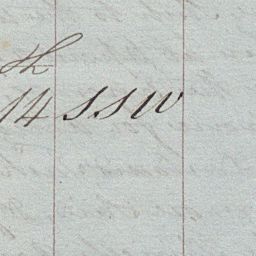 th
14 SSW